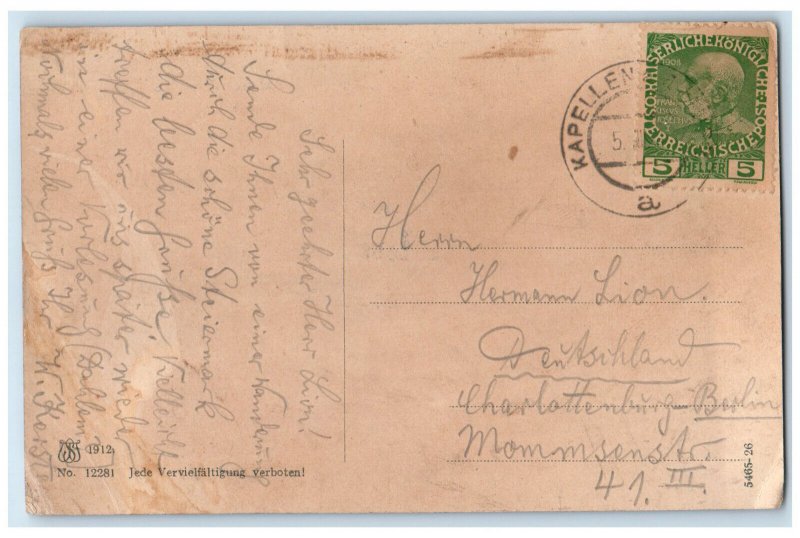 Sehr geehrter Herr Lion!
Sende Ihnen von einer Wanderung
durch die schöne Steiermark
die besten Grüße. Vielleicht
treffen wir uns später wieder
in einer Vorlesung (Dahlem)
Nochmals vielen Gruß Ihr
KAPELLEN
5.
a
K.K. OSTERREICHISCHE POST
1908
5 HELLER 5
Herrn
Hermann Lion.
Deutschland
Charlottenburg-Berlin
Mommsenstr.
41. III.
1912.
No. 12281 Jede Vervielfältigung verboten!
5465-26